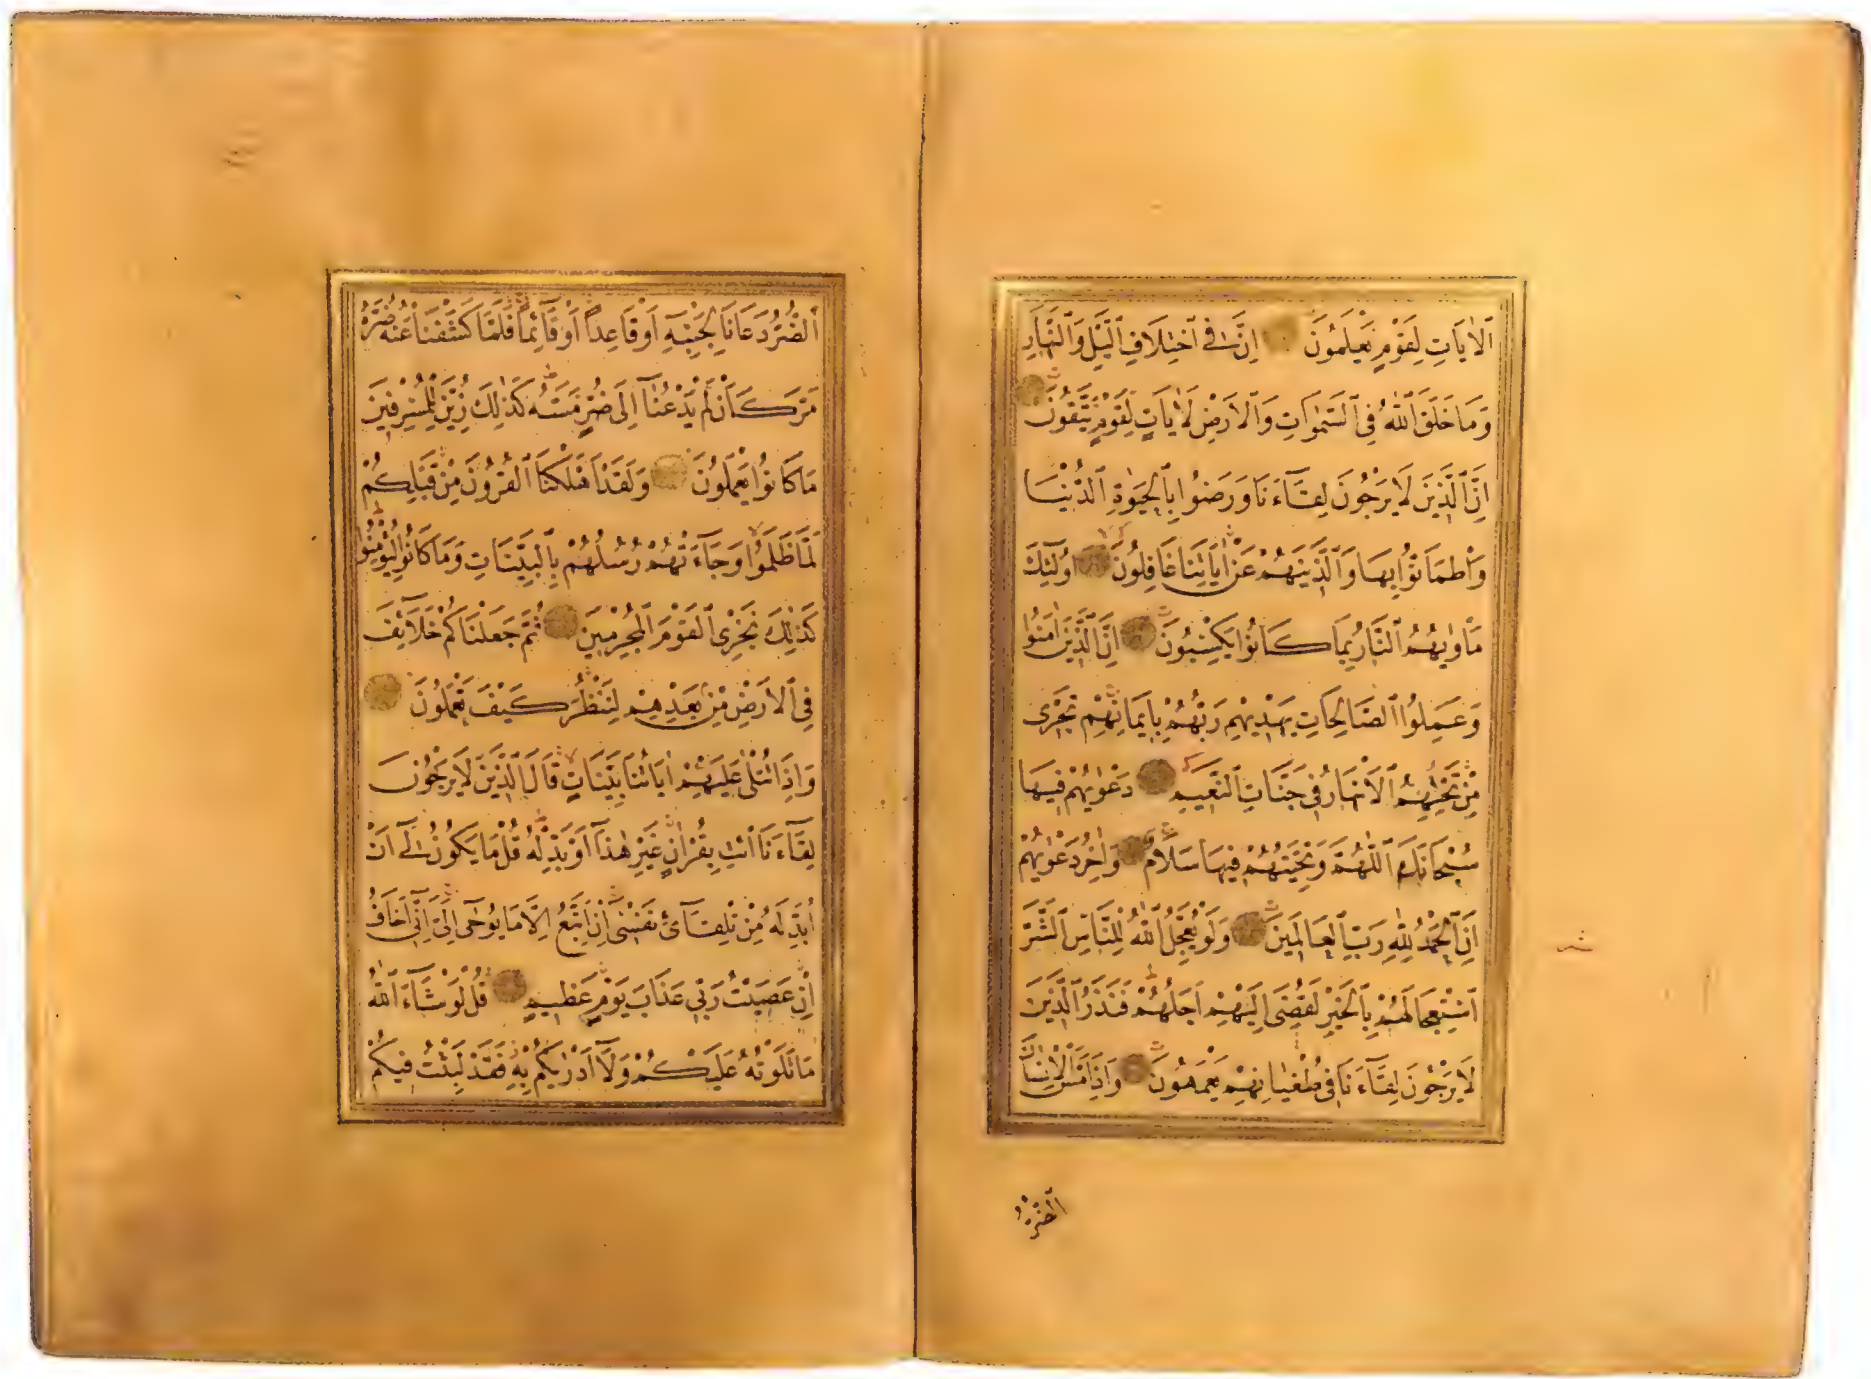 ٱلْاٰيَاتِ لِقَوْمٍ يَعْلَمُونَ اِنَّ فِى ٱخْتِلَافِ ٱلَّيْلِ وَٱلنَّهَارِ
وَمَا خَلَقَ ٱللّٰهُ فِى ٱلسَّمٰوَاتِ وَٱلْاَرْضِ لَاٰيَاتٍ لِقَوْمٍ يَتَّقُونَ
اِنَّ ٱلَّذِينَ لَا يَرْجُونَ لِقَآءَنَا وَرَضُوا بِٱلْحَيٰوةِ ٱلدُّنْيَا
وَٱطْمَاَنُّوا بِهَا وَٱلَّذِينَ هُمْ عَنْ اٰيَاتِنَا غَافِلُونَ اُولٰٓئِكَ
مَاْوٰيهُمُ ٱلنَّارُ بِمَا كَانُوا يَكْسِبُونَ اِنَّ ٱلَّذِينَ اٰمَنُوا
وَعَمِلُوا ٱلصَّالِحَاتِ يَهْدِيهِمْ رَبُّهُمْ بِاِيمَانِهِمْ تَجْرِى
مِنْ تَحْتِهِمُ ٱلْاَنْهَارُ فِى جَنَّاتِ ٱلنَّعِيمِ دَعْوٰيهُمْ فِيهَا
سُبْحَانَكَ ٱللّٰهُمَّ وَتَحِيَّتُهُمْ فِيهَا سَلَامٌ وَاٰخِرُ دَعْوٰيهُمْ
اَنِ ٱلْحَمْدُ لِلّٰهِ رَبِّ ٱلْعَالَمِينَ وَلَوْ يُعَجِّلُ ٱللّٰهُ لِلنَّاسِ ٱلشَّرَّ
ٱسْتِعْجَالَهُمْ بِٱلْخَيْرِ لَقُضِىَ اِلَيْهِمْ اَجَلُهُمْ فَنَذَرُ ٱلَّذِينَ
لَا يَرْجُونَ لِقَآءَنَا فِى طُغْيَانِهِمْ يَعْمَهُونَ وَاِذَا مَسَّ ٱلْاِنْسَانَ
ٱلضُّرُّ
ٱلضُّرُّ دَعَانَا لِجَنْبِهِٓ اَوْ قَاعِدًا اَوْ قَآئِمًا فَلَمَّا كَشَفْنَا عَنْهُ ضُرَّهُ
مَرَّ كَاَنْ لَمْ يَدْعُنَٓا اِلٰى ضُرٍّ مَسَّهُ كَذٰلِكَ زُيِّنَ لِلْمُسْرِفِينَ
مَا كَانُوا يَعْمَلُونَ وَلَقَدْ اَهْلَكْنَا ٱلْقُرُونَ مِنْ قَبْلِكُمْ
لَمَّا ظَلَمُوا وَجَآءَتْهُمْ رُسُلُهُمْ بِٱلْبَيِّنَاتِ وَمَا كَانُوا لِيُؤْمِنُوا
كَذٰلِكَ نَجْزِى ٱلْقَوْمَ ٱلْمُجْرِمِينَ ثُمَّ جَعَلْنَاكُمْ خَلَآئِفَ
فِى ٱلْاَرْضِ مِنْ بَعْدِهِمْ لِنَنْظُرَ كَيْفَ تَعْمَلُونَ
وَاِذَا تُتْلٰى عَلَيْهِمْ اٰيَاتُنَا بَيِّنَاتٍ قَالَ ٱلَّذِينَ لَا يَرْجُونَ
لِقَآءَنَا ٱئْتِ بِقُرْاٰنٍ غَيْرِ هٰذَٓا اَوْ بَدِّلْهُ قُلْ مَا يَكُونُ لِٓى اَنْ
اُبَدِّلَهُ مِنْ تِلْقَآئِ نَفْسِى اِنْ اَتَّبِعُ اِلَّا مَا يُوحٰٓى اِلَىَّ اِنِّٓى اَخَافُ
اِنْ عَصَيْتُ رَبِّى عَذَابَ يَوْمٍ عَظِيمٍ قُلْ لَوْ شَآءَ ٱللّٰهُ
مَا تَلَوْتُهُ عَلَيْكُمْ وَلَٓا اَدْرٰيكُمْ بِهِ فَقَدْ لَبِثْتُ فِيكُمْ